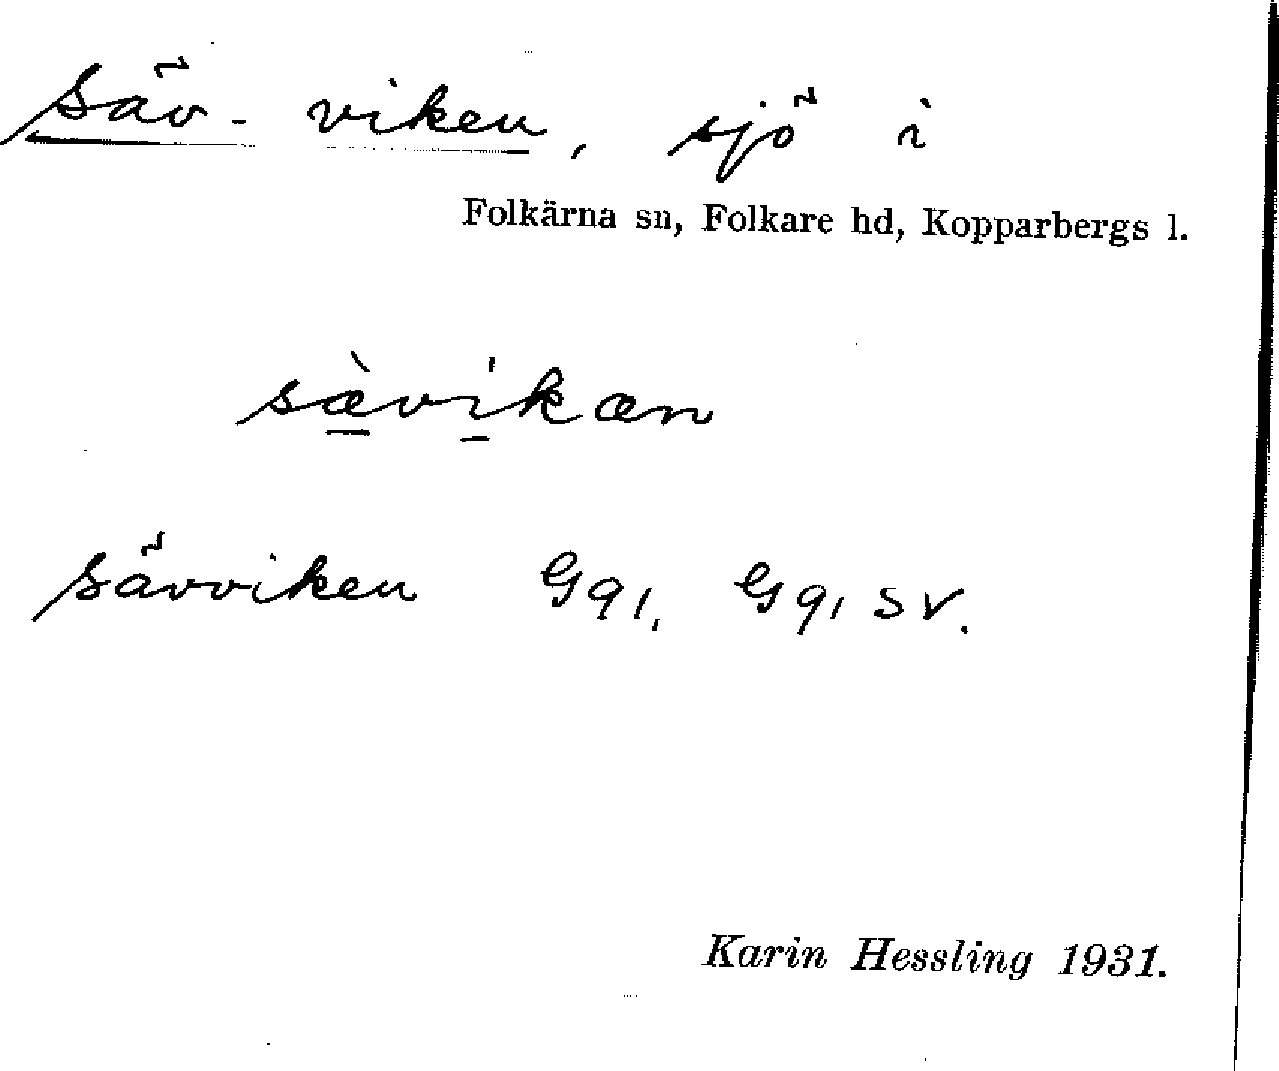 Säv-viken, sjö i
Folkärna sn, Folkare hd, Kopparbergs l.
sæ̀vi̍kæn
Sävviken G91, G91 SV.
Karin Hessling 1931.